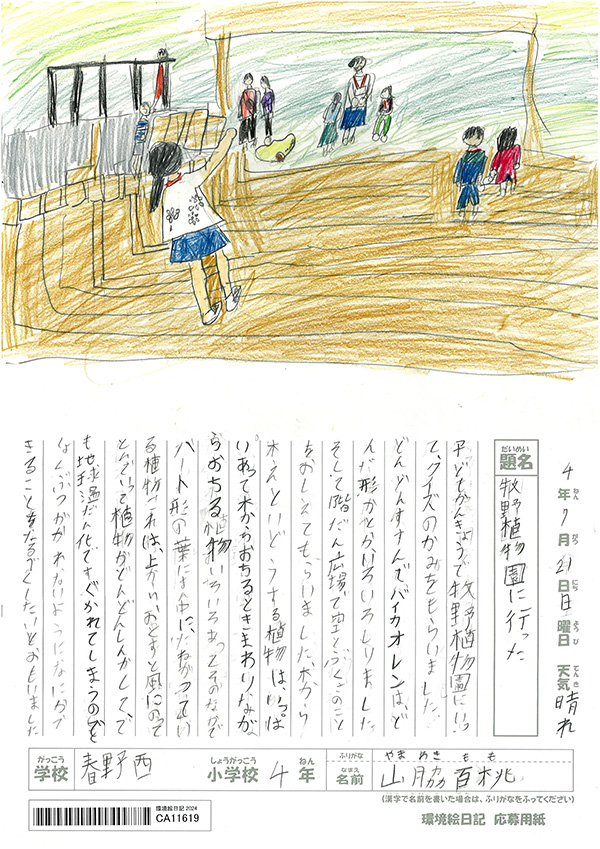 4年7月21日日曜日 天気晴れ
題名 牧野植物園に行った
子どもかんきょうで牧野植物園にいっ
て、クイズのかみをもらいました
どんどんすすんでバイカオレンは、ど
んな形かとか、いろいろしりました
そして階だん広場で空とぶ
をおしえてもらいました、木から
木えといどうする植物は、いっぱ
いあって木からおちるときまわりなが
らおちる植物いろいろあってそのなかで
ハート形の葉にまん中にたねがついてい
る植物これは、上からおとすと風にのって
とんでいって植物がどんどんしんかして、で
も地球温だん化ですぐかれてしまうので
かれないようになにかで
きることを したいとおもいました
がっこう 学校 春野西 しょうがっこう 小学校 4 ねん 年
ふりがな やまわき もも
なまえ 名前 山脇百桃
(漢字で名前を書いた場合は、ふりがなをふってください)
環境絵日記 2024
CA11619
環境絵日記 応募用紙